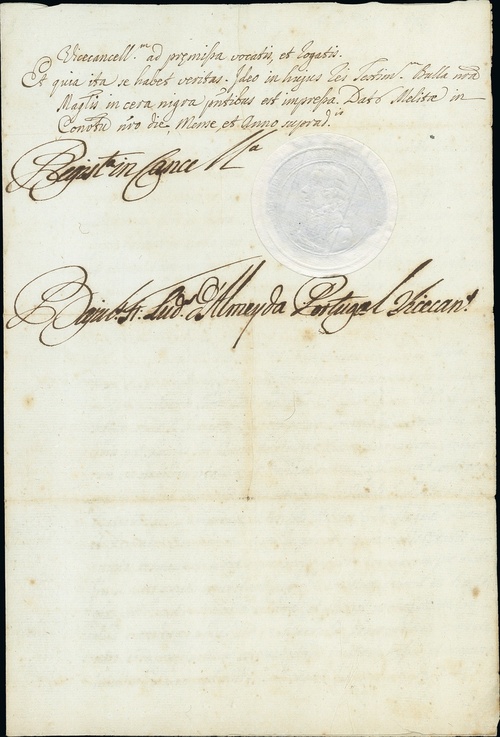 Vicecancell.m ad premissa vocatis, et rogatis.
Et quia ita se habet veritas. Ideo in hujus rei Testim.m Bulla nra
Maglis in cera nigra pntibus est impressa. Dat. Melitæ in
Conntu nro die, Mense, et Anno suprad.is
Regist. in Cancellra
Fr. Lud. d'Almeyda Portugal Vicecan.s